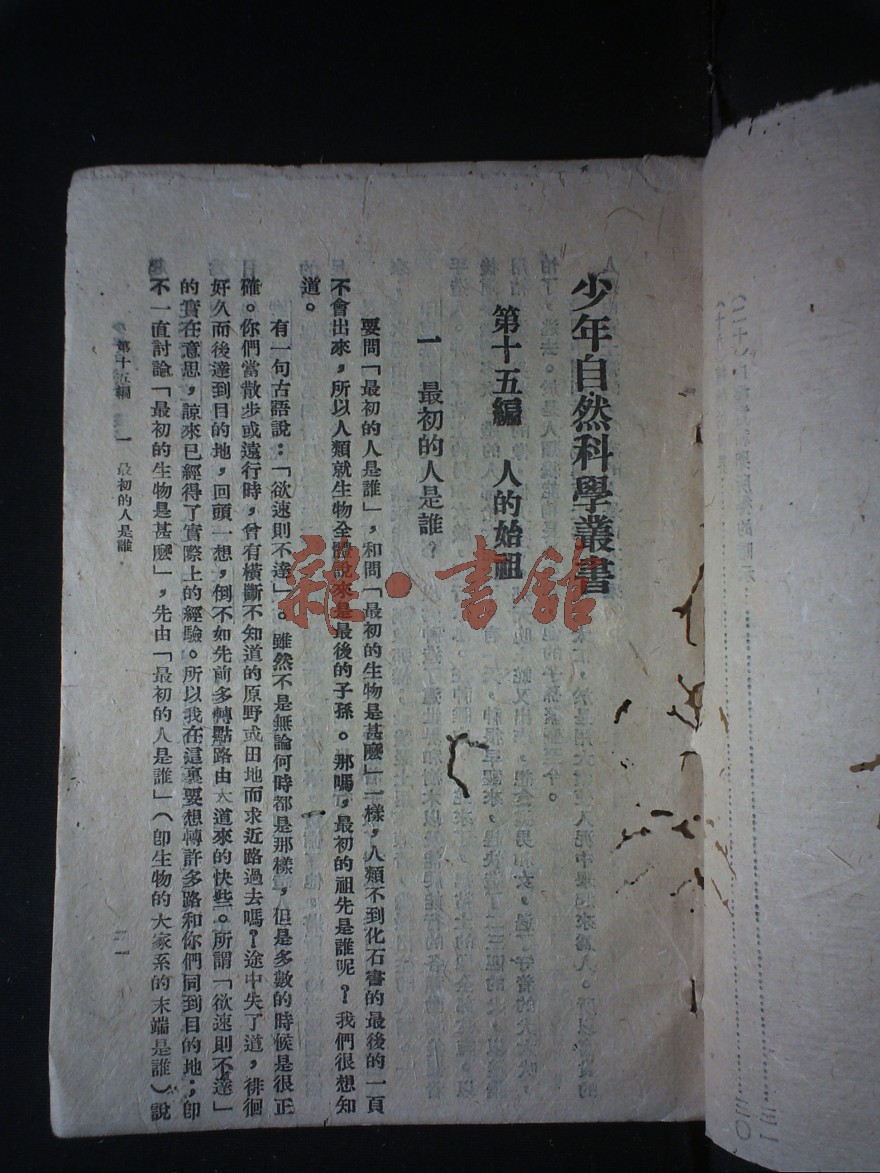 少年自然科學叢書
第十五編 人的始祖
一 最初的人是誰?
要問「最初的人是誰」,和問「最初的生物是甚麼」一樣,人類不到化石書的最後的一頁
不會出來,所以人類就生物全體說來是最後的子孫。那嗎,最初的祖先是誰呢?我們很想知
道。
有一句古語說:「欲速則不達」。雖然不是無論何時都是那樣,但是多數的時候是很正
確。你們當散步或遠行時,曾有橫斷不知道的原野或田地而求近路過去嗎?途中失了道,徘徊
好久而後達到目的地,回頭一想,倒不如先前多轉點路由大道來的快些。所謂「欲速則不達」
的實在意思,諒來已經得了實際上的經驗。所以我在這裏要想轉許多路和你們同到目的地;卽
不一直討論「最初的生物是甚麼」,先由「最初的人是誰」(卽生物的大家系的末端是誰)說
第十五編 一 最初的人是誰
雜·書館